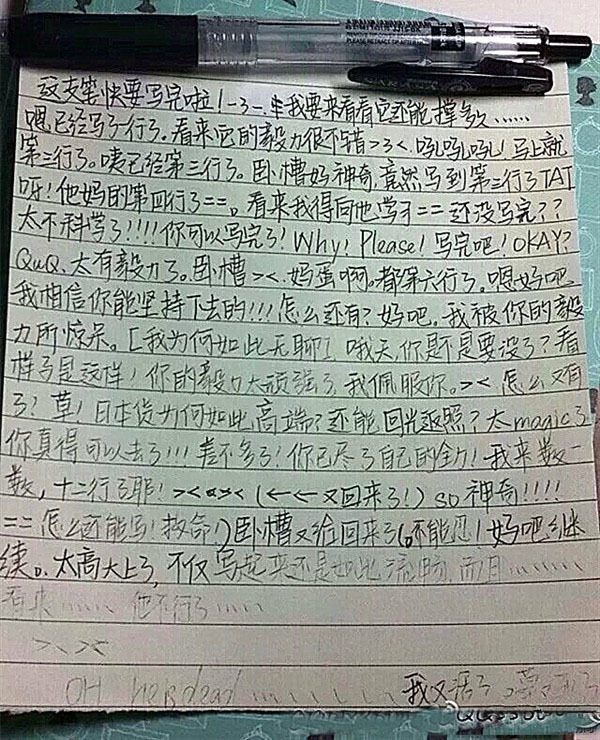 这支笔快要写完啦!-3-我要来看看它还能撑多久……
嗯已经写了一行了。看来它的毅力很不错>3<.吼吼吼!马上就
第二行了。咦已经第三行了。卧槽好神奇,竟然写到第三行了TAT
呀!他妈的第四行了==。看来我得向他学习==还没写完??
太不科学了!!!!你可以写完了!Why!Please!写完吧!OKAY?
QuQ.太有毅力了。卧槽><.妈蛋啊。都第六行了。嗯好吧
我相信你能坚持下去的!!!怎么还有?好吧。我被你的毅
力所惊呆。[我为何如此无聊]哦天,你是不是要没了?看
样子是这样!你的毅力太顽强了,我佩服你。><怎么又有
了?草!日本货为何如此高端?还能回光返照?太magic了
你真得可以去了!!!差不多了!你已尽了自己的全力!我来数一
数,十二行了耶!><(←←又回来了!)so神奇!!!!
==怎么还能写!救命!)卧槽又给回来了(不能忍!好吧,继
续。太高大上了,不仅写起来还是如此流畅,而且………
看来…… 他不行了……
>、><
OH he is dead…… 我又活了